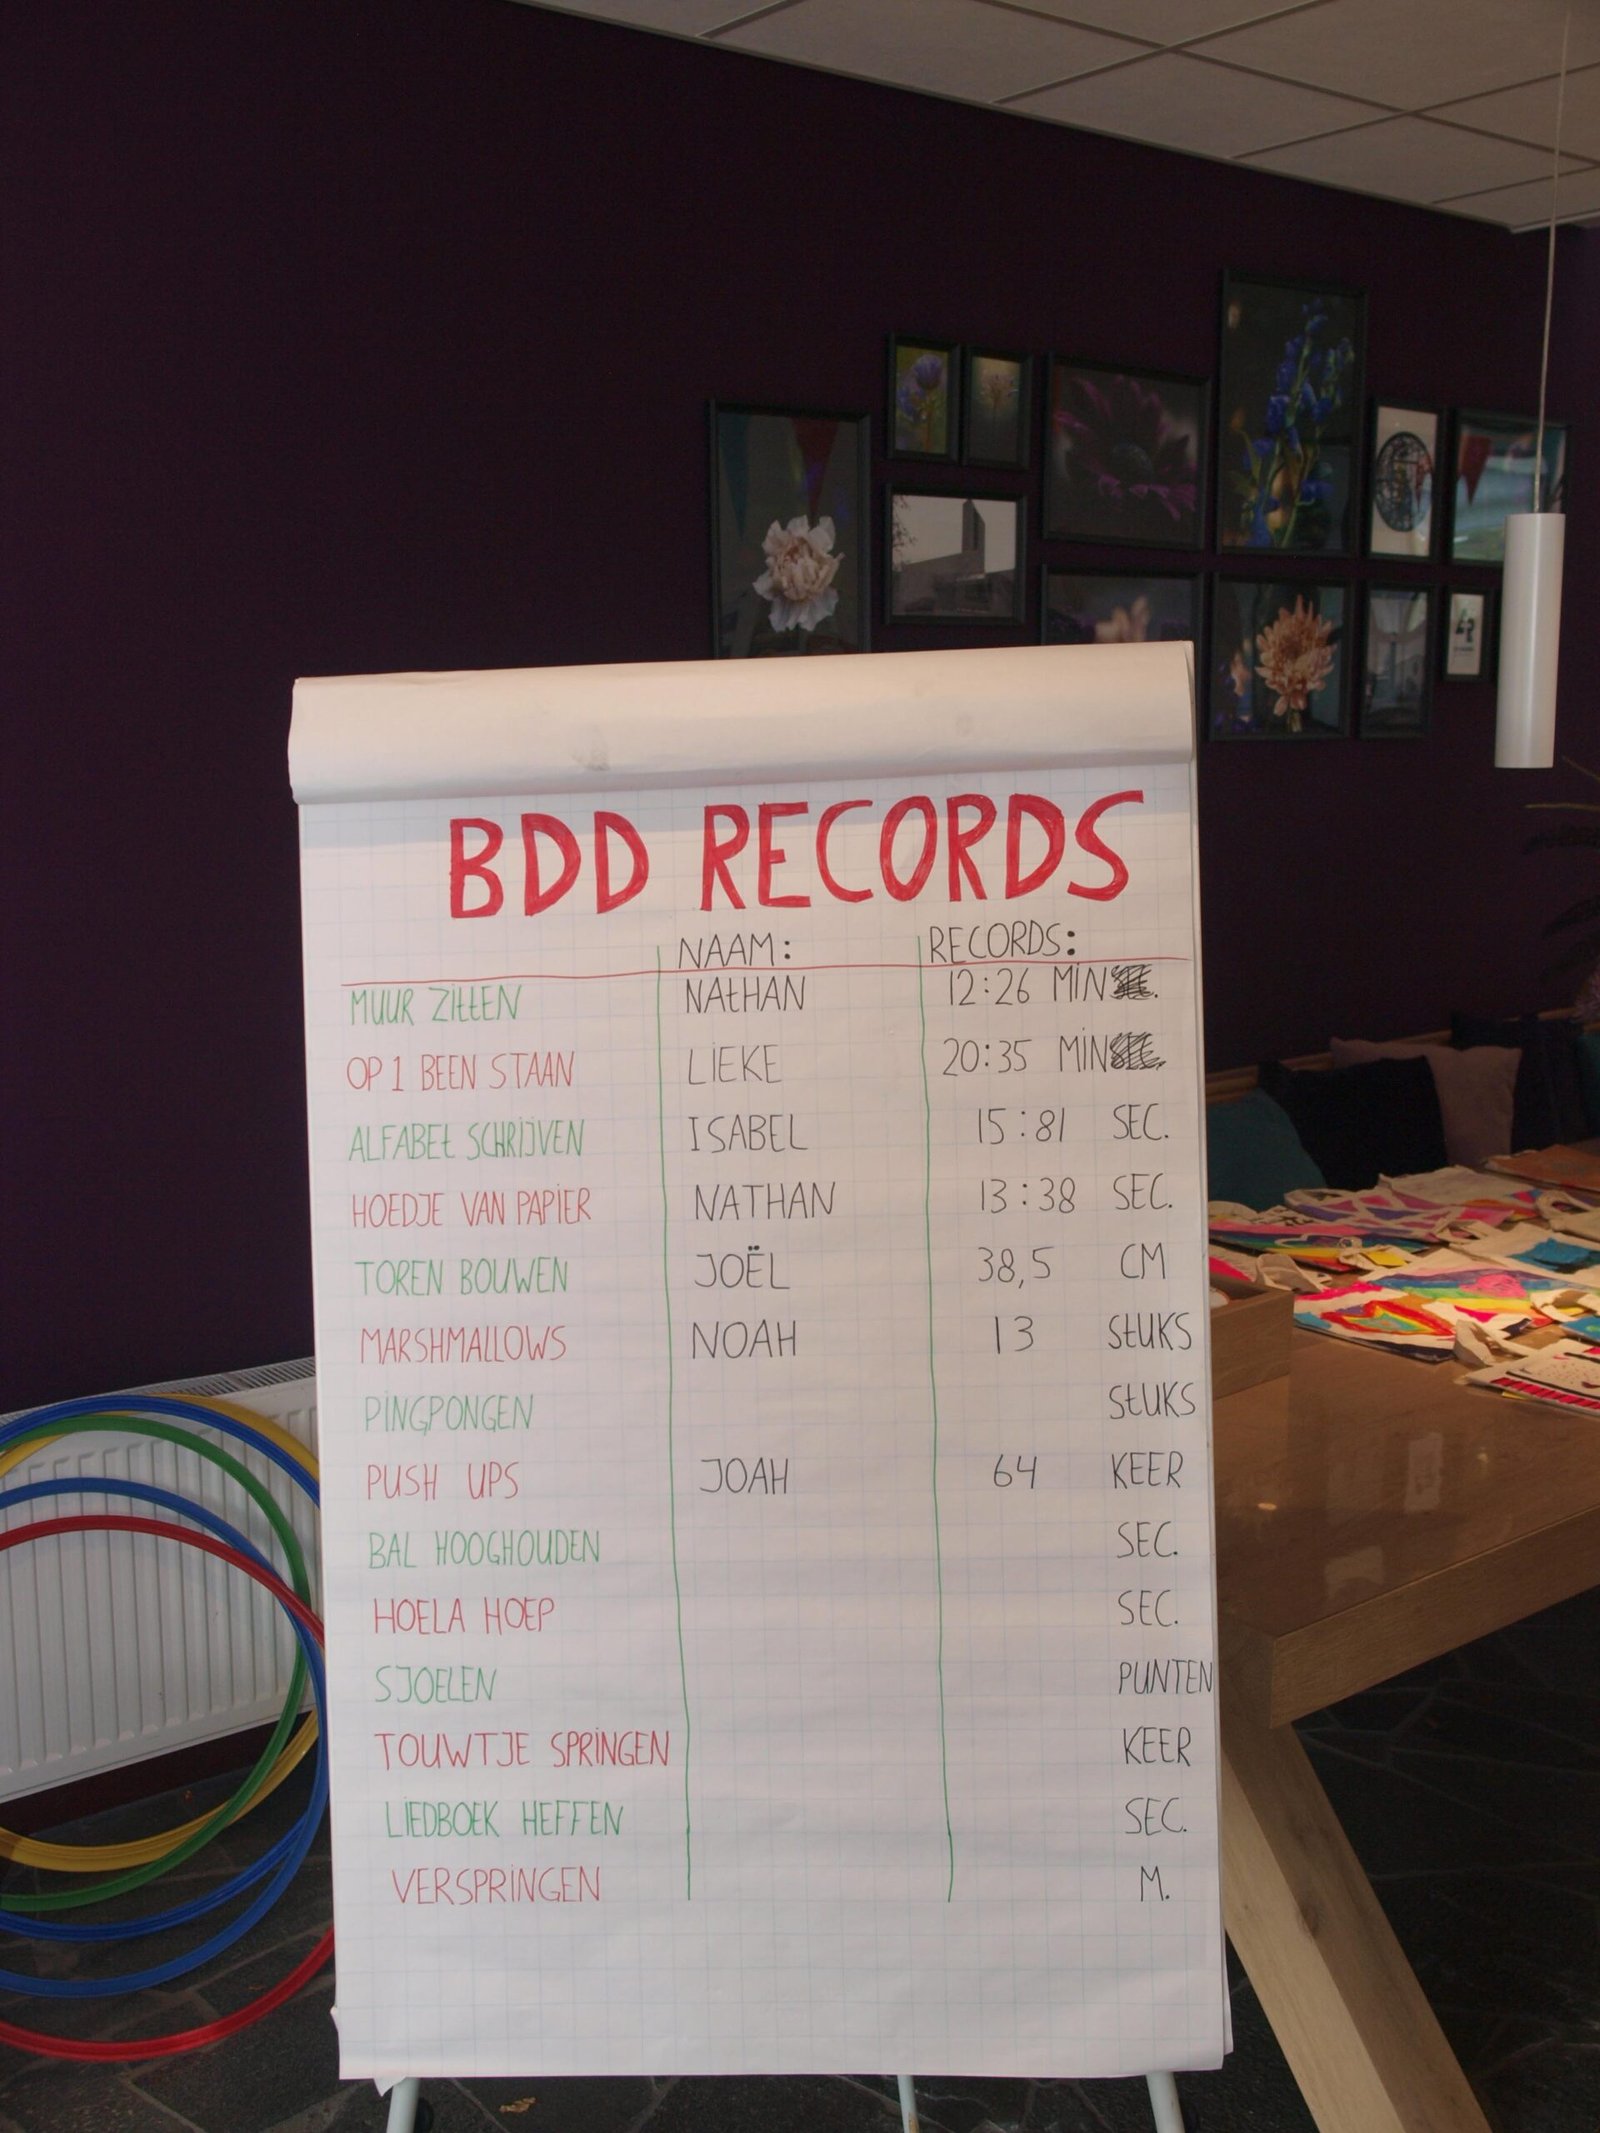 BDD RECORDS
NAAM: RECORDS:
MUUR ZITTEN NATHAN 12:26 MIN.
OP 1 BEEN STAAN LIEKE 20:35 MIN
ALFABET SCHRIJVEN ISABEL 15:81 SEC.
HOEDJE VAN PAPIER NATHAN 13:38 SEC.
TOREN BOUWEN JOËL 38,5 CM
MARSHMALLOWS NOAH 13 STUKS
PINGPONGEN STUKS
PUSH UPS JOAH 64 KEER
BAL HOOGHOUDEN SEC.
HOELA HOEP SEC.
SJOELEN PUNTEN
TOUWTJE SPRINGEN KEER
LIEDBOEK HEFFEN SEC.
VERSPRINGEN M.